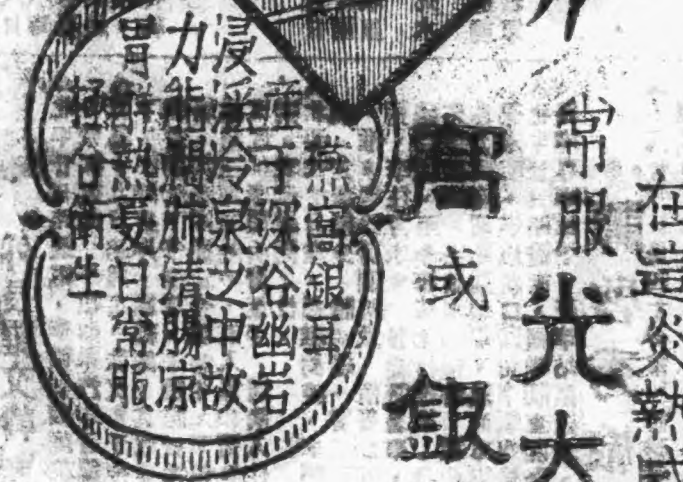 在這炎熱
常服光大
窩或銀
燕窩銀耳
產于深谷幽岩
浸淫冷泉之中故
力能潤肺清腸涼
胃解熱夏日常服
極合衛生